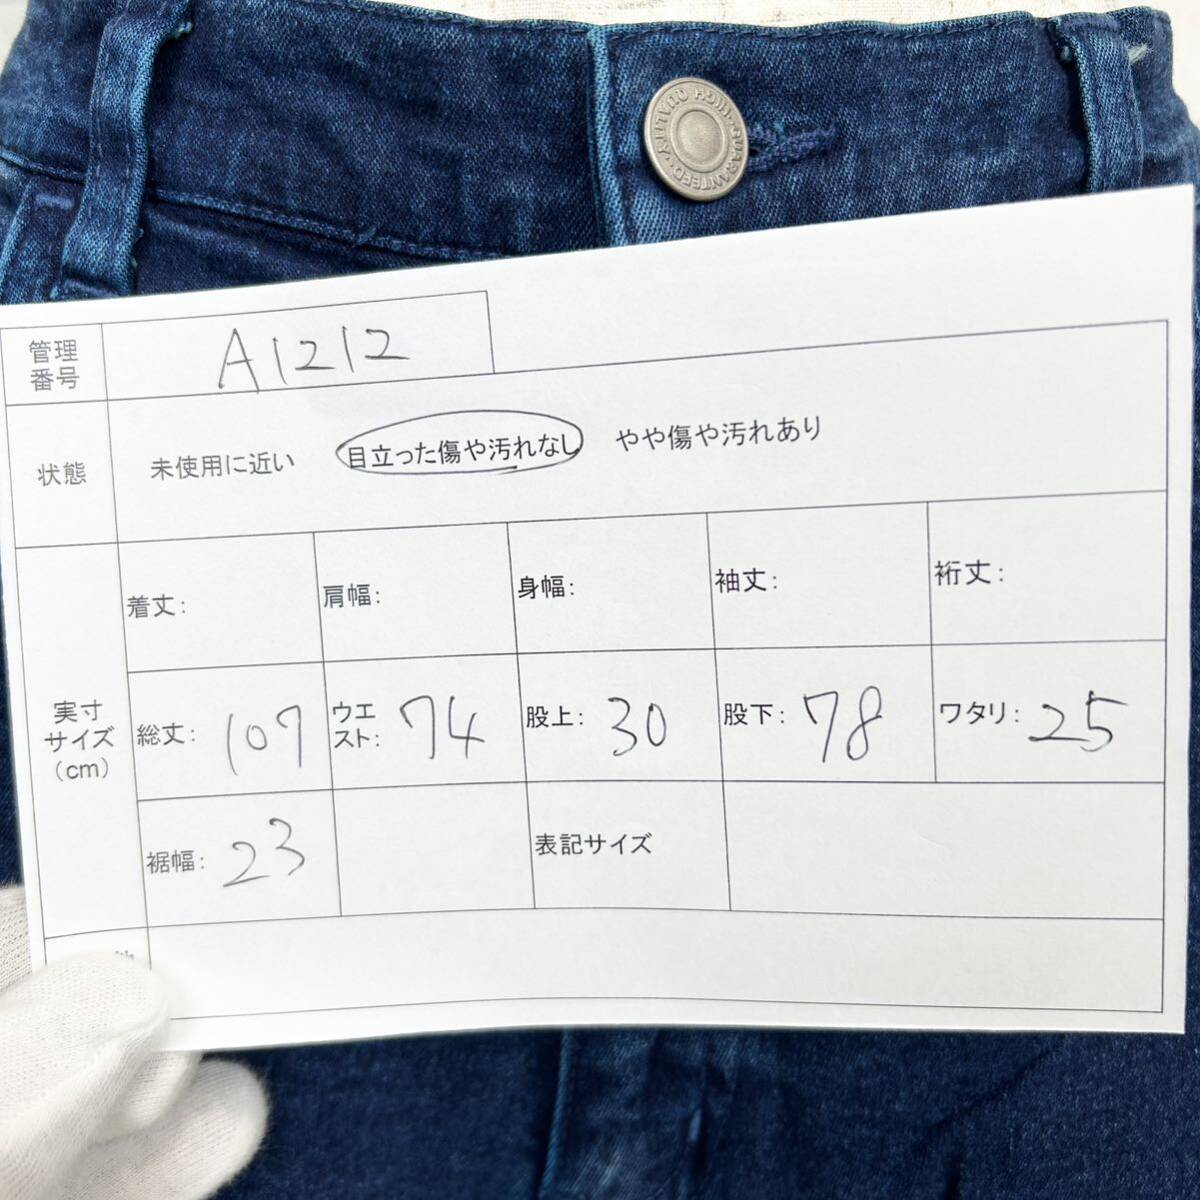 HIGH QUALITY · GUARANTEED ·
管理番号 A1212
状態 未使用に近い 目立った傷や汚れなし やや傷や汚れあり
実寸サイズ(cm)
着丈: 肩幅: 身幅: 袖丈: 裄丈:
総丈: 107 ウエスト: 74 股上: 30 股下: 78 ワタリ: 25
裾幅: 23 表記サイズ